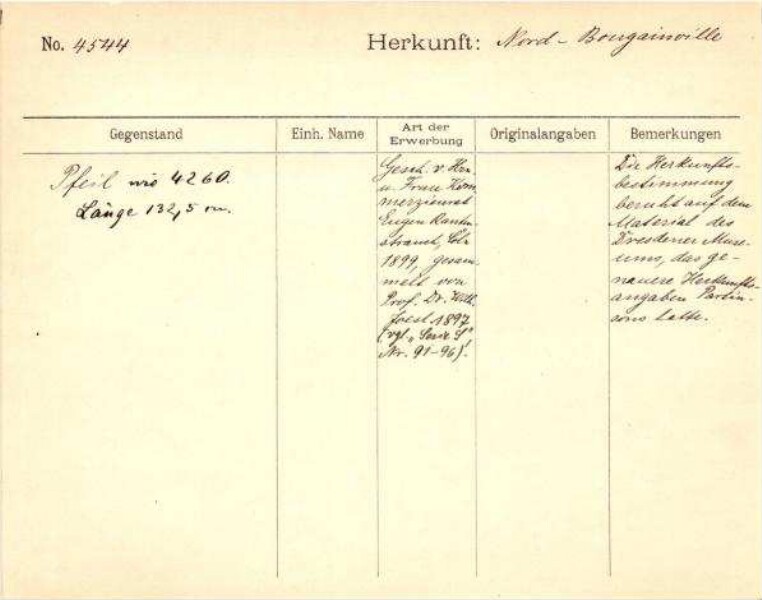 No. 4544
Herkunft: Nord-Bougainville
Gegenstand
Einh. Name
Art der Erwerbung
Originalangaben
Bemerkungen
Pfeil wie 4260.
Länge 132,5 cm.
Gesch. v. Hrn.
u. Frau Kom
merzienrat
Eugen Rauten
strauch, Cöln
1899, gesam
melt von
Prof. Dr. Wilh.
Joest 1897
(vgl. „Serie S"
Nr. 91-96)!
Die Herkunfts-
bestimmung
beruht auf dem
Material des
Dresdener Muse-
ums, das ge-
nauere Herkunfts-
angaben Parkin-
sons hatte.